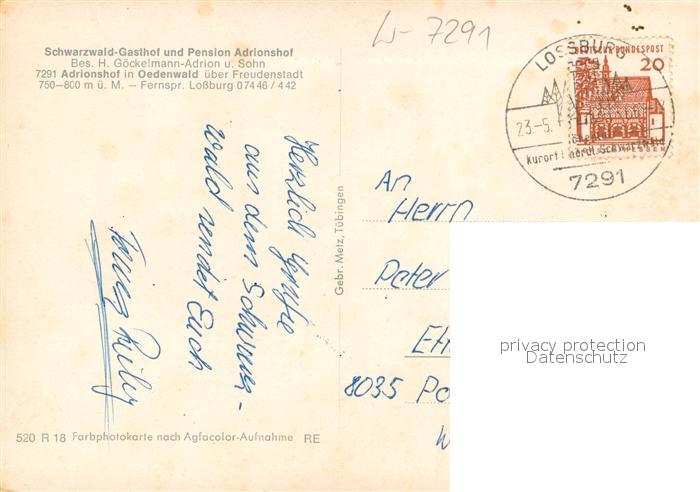 W-7291
Schwarzwald-Gasthof und Pension Adrionshof
Bes. H. Göckelmann-Adrion u. Sohn
7291 Adrionshof in Oedenwald über Freudenstadt
750–800 m ü. M. – Fernspr. Loßburg 07446/442
LOSSBURG
23.-5.
Kurort i. nördl. Schwarzwald
7291
DEUTSCHE BUNDESPOST
20
Herzlich Grüße
aus dem Schwarz-
wald sendet Euch
Gebr. Metz, Tübingen
An
Herrn
Peter
8035
privacy protection
Datenschutz
520 R 18 Farbphotokarte nach Agfacolor-Aufnahme RE